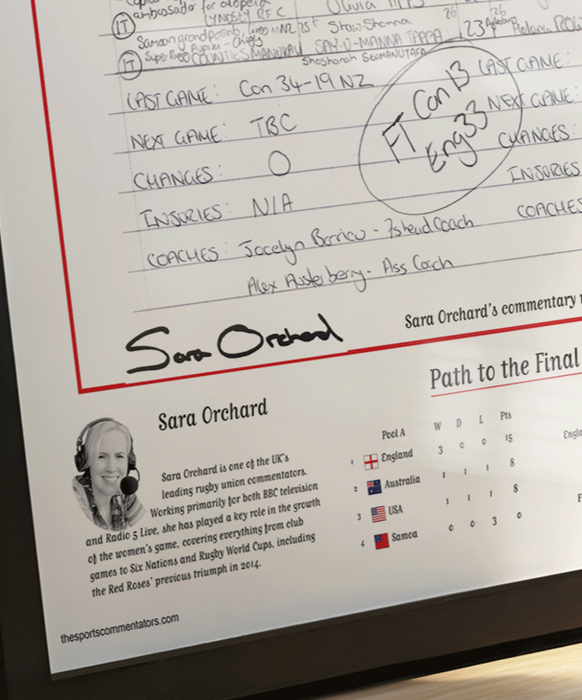 ambassador for alopecia
LYNDSEY RFC
Olivia
IT
Samoan grandparents, lives in NZ
1st Show Shonna
26
26
Super Rugby Aupiki - Chiefs
COUNTIES MANUKAU
23
IT
LAST GAME: Can 34-19 NZ
LAST GAME:
NEXT GAME: TBC
NEXT GAME:
CHANGES: 0
CHANGES:
FT Can 13
Eng 33
INJURIES: N/A
INJURIES
COACHES: Jocelyn Barrieu - 7s head Coach
COACHES
Alex Austerberry - Ass Coach
Sara Orchard
Sara Orchard's commentary
Path to the Final
Sara Orchard
Sara Orchard is one of the UK's
leading rugby union commentators.
Working primarily for both BBC television
and Radio 5 Live, she has played a key role in the growth
of the women's game, covering everything from club
games to Six Nations and Rugby World Cups, including
the Red Roses' previous triumph in 2014.
Pool A W D L Pts
1 England 3 0 0 15
2 Australia 1 1 1 8
3 USA 1 1 1 8
4 Samoa 0 0 3 0
Engl
thesportscommentators.com